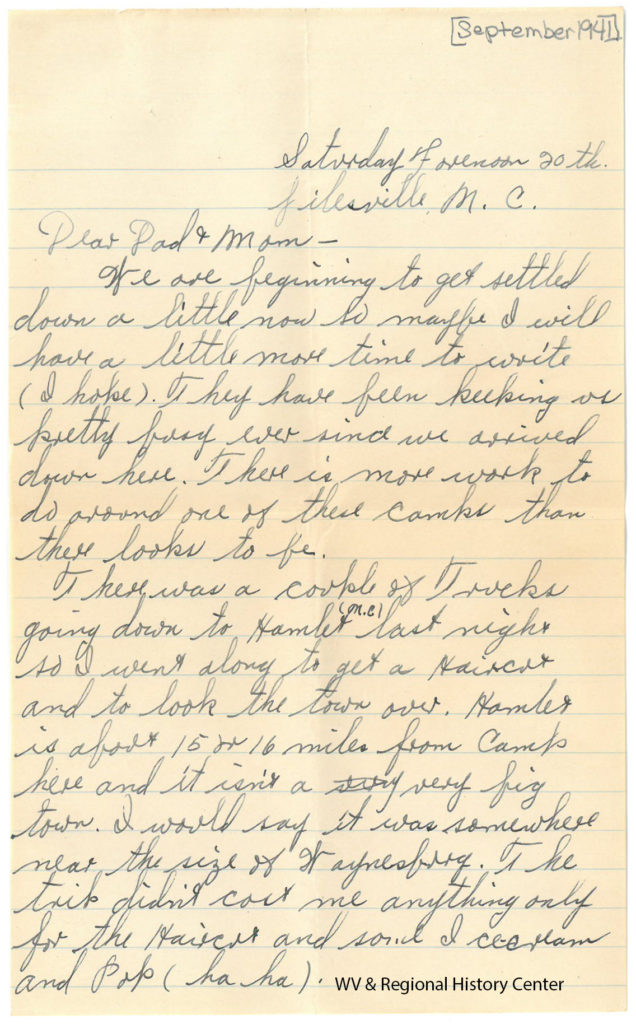 [September 1941]
Saturday Forenoon 20th.
Jilesville, N. C.
Dear Dad & Mom —
We are beginning to get settled
down a little now so maybe I will
have a little more time to write
(I hope). They have been keeping us
pretty busy ever sind we arrived
down here. There is more work to
do around one of these camps than
there looks to be.
There was a couple of Trucks
going down to Hamlet (N.C) last night
so I went along to get a Haircut
and to look the town over. Hamlet
is about 15 or 16 miles from Camp
here and it isn't a very very big
town. I would say it was somewhere
near the size of Waynesburg. The
trip didn't cost me anything only
for the Haircut and some Icecream
and Pop (ha ha).
WV & Regional History Center